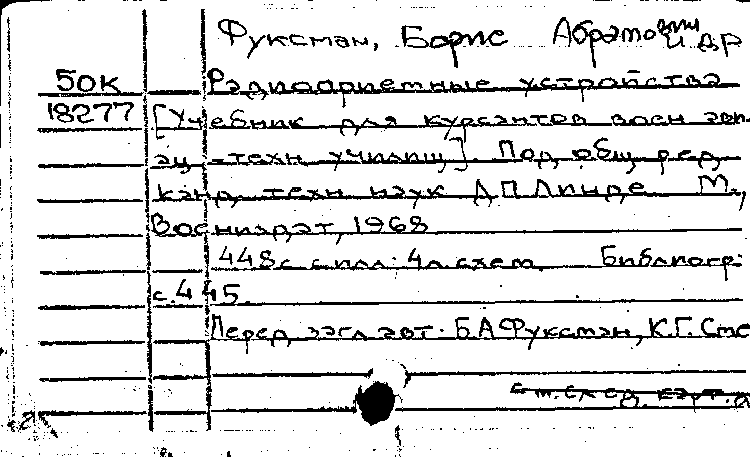 Фуксман, Борис Абрамович и др
50К Радиоприемные устройства
18277 [Учебник для курсантов воен ави-
ац-техн училищ]. Под общ ред
канд техн наук Д П Линде М.,
Воениздат, 1968
448с с илл; 4л схем Библиогр:
с. 445.
Перед загл авт. Б.А Фуксман, К.Г. Сте
См. след. карт.